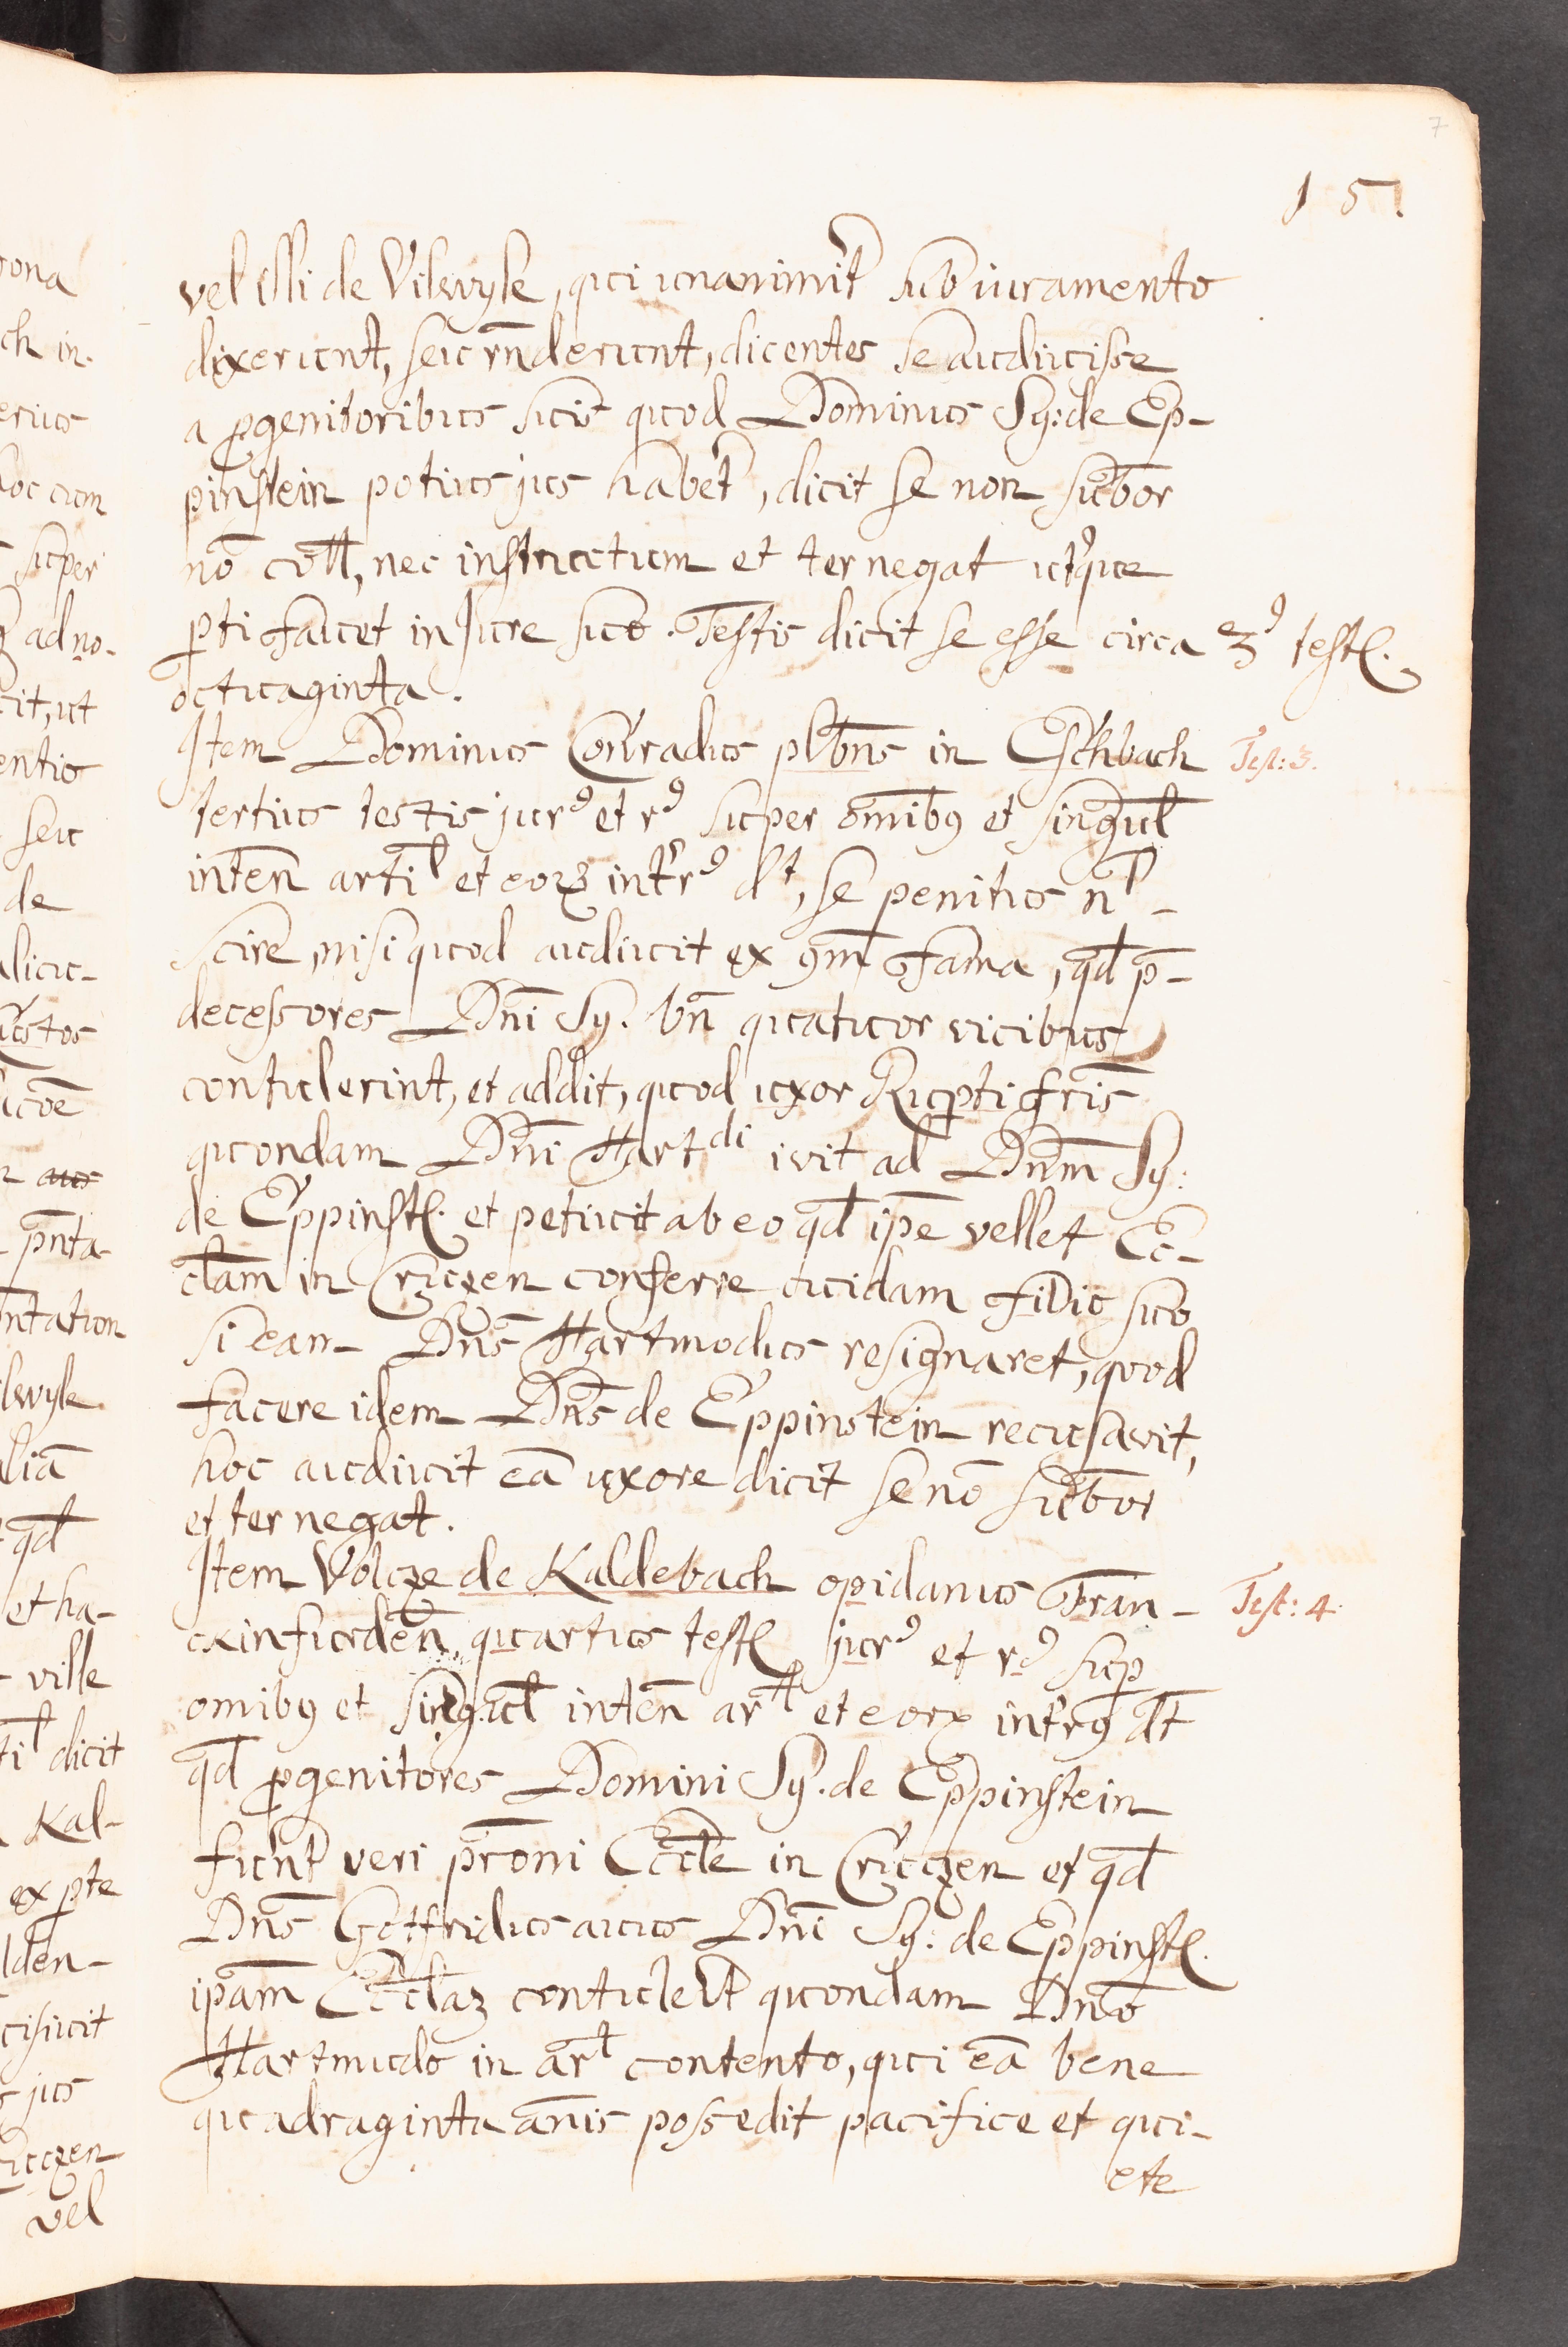 7
151
vel illi de Vilwyle, qui unanimit̃ sub iuramento
dixerunt, seu rñderunt, dicentes se audiuisse
a ꝓgenitoribus suis quod Dominus Sy: de Ep-
pinstein potius jus habet, dicit se non subor
nō coll, nec instructum et ter negat utrique
ꝑti fauet in Jure suo. Testis dicit se esse circa
octuaginta.
3ꝰ testl.
Item Dominus Conradus plbns in Eschbach
Test: 3.
tertius testis jurꝰ et rꝰ super omibꝰ et singul
inten̄ artil et eorꝫ int̃rꝰ dt, se penitus nl -
scire, nisi quod audiuit ex ꝯm fama, qd p̄-
decessores Dn̄i Sy. bn̄ quatuor vicibus
contulerint, et addit, quod uxor Ruꝑti fr̄is
quondam Dn̄i Hartdi ivit ad Dnm̄ Sy:
de Eppinstl. et petiuit ab eo qd ip̄e vellet Ec-
cl̄am in Cruczen conferre cuidam filio suo
si eam Dn̄s Hartmodus resignaret, quod
facere idem Dn̄s de Eppinstein recusavit,
hoc audiuit eā uxore dicit se nō subor
et ter negat.
Item Volcze de Kaldebach opidanus Fran-
Test: 4.
ckinfurden̄, quartus testl jurꝰ et rꝰ suꝑ
omibꝰ et singul inten̄ artl et eorꝝ int̃rꝰ dt
qd ꝓgenitores Domini Sy. de Eppinstein
fuñt veri pr̄oni Eccl̄e in Cruczen et qd
Dn̄s Gotfridus auus Dn̄i Sy: de Eppinstl.
ip̄am Eccl̄aꝫ contulet quondam Dn̄o
Hartmudo in arl contento, qui eā bene
quadraginta an̄is possedit pacifice et qui-
ete